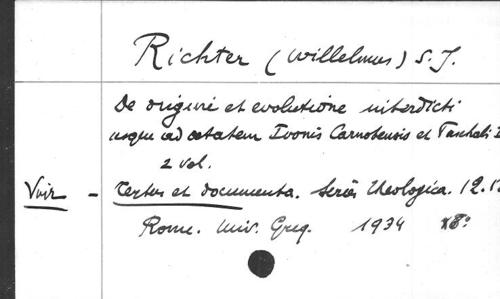 Richter (Willelmus) S. J.
De origine et evolutione interdicti
usque ad aetatem Ivonis Carnotensis et Paschalis I
2 vol.
Voir - Textus et documenta. Series theologica. 12.1
Rome. Univ. Greg. 1934 8°